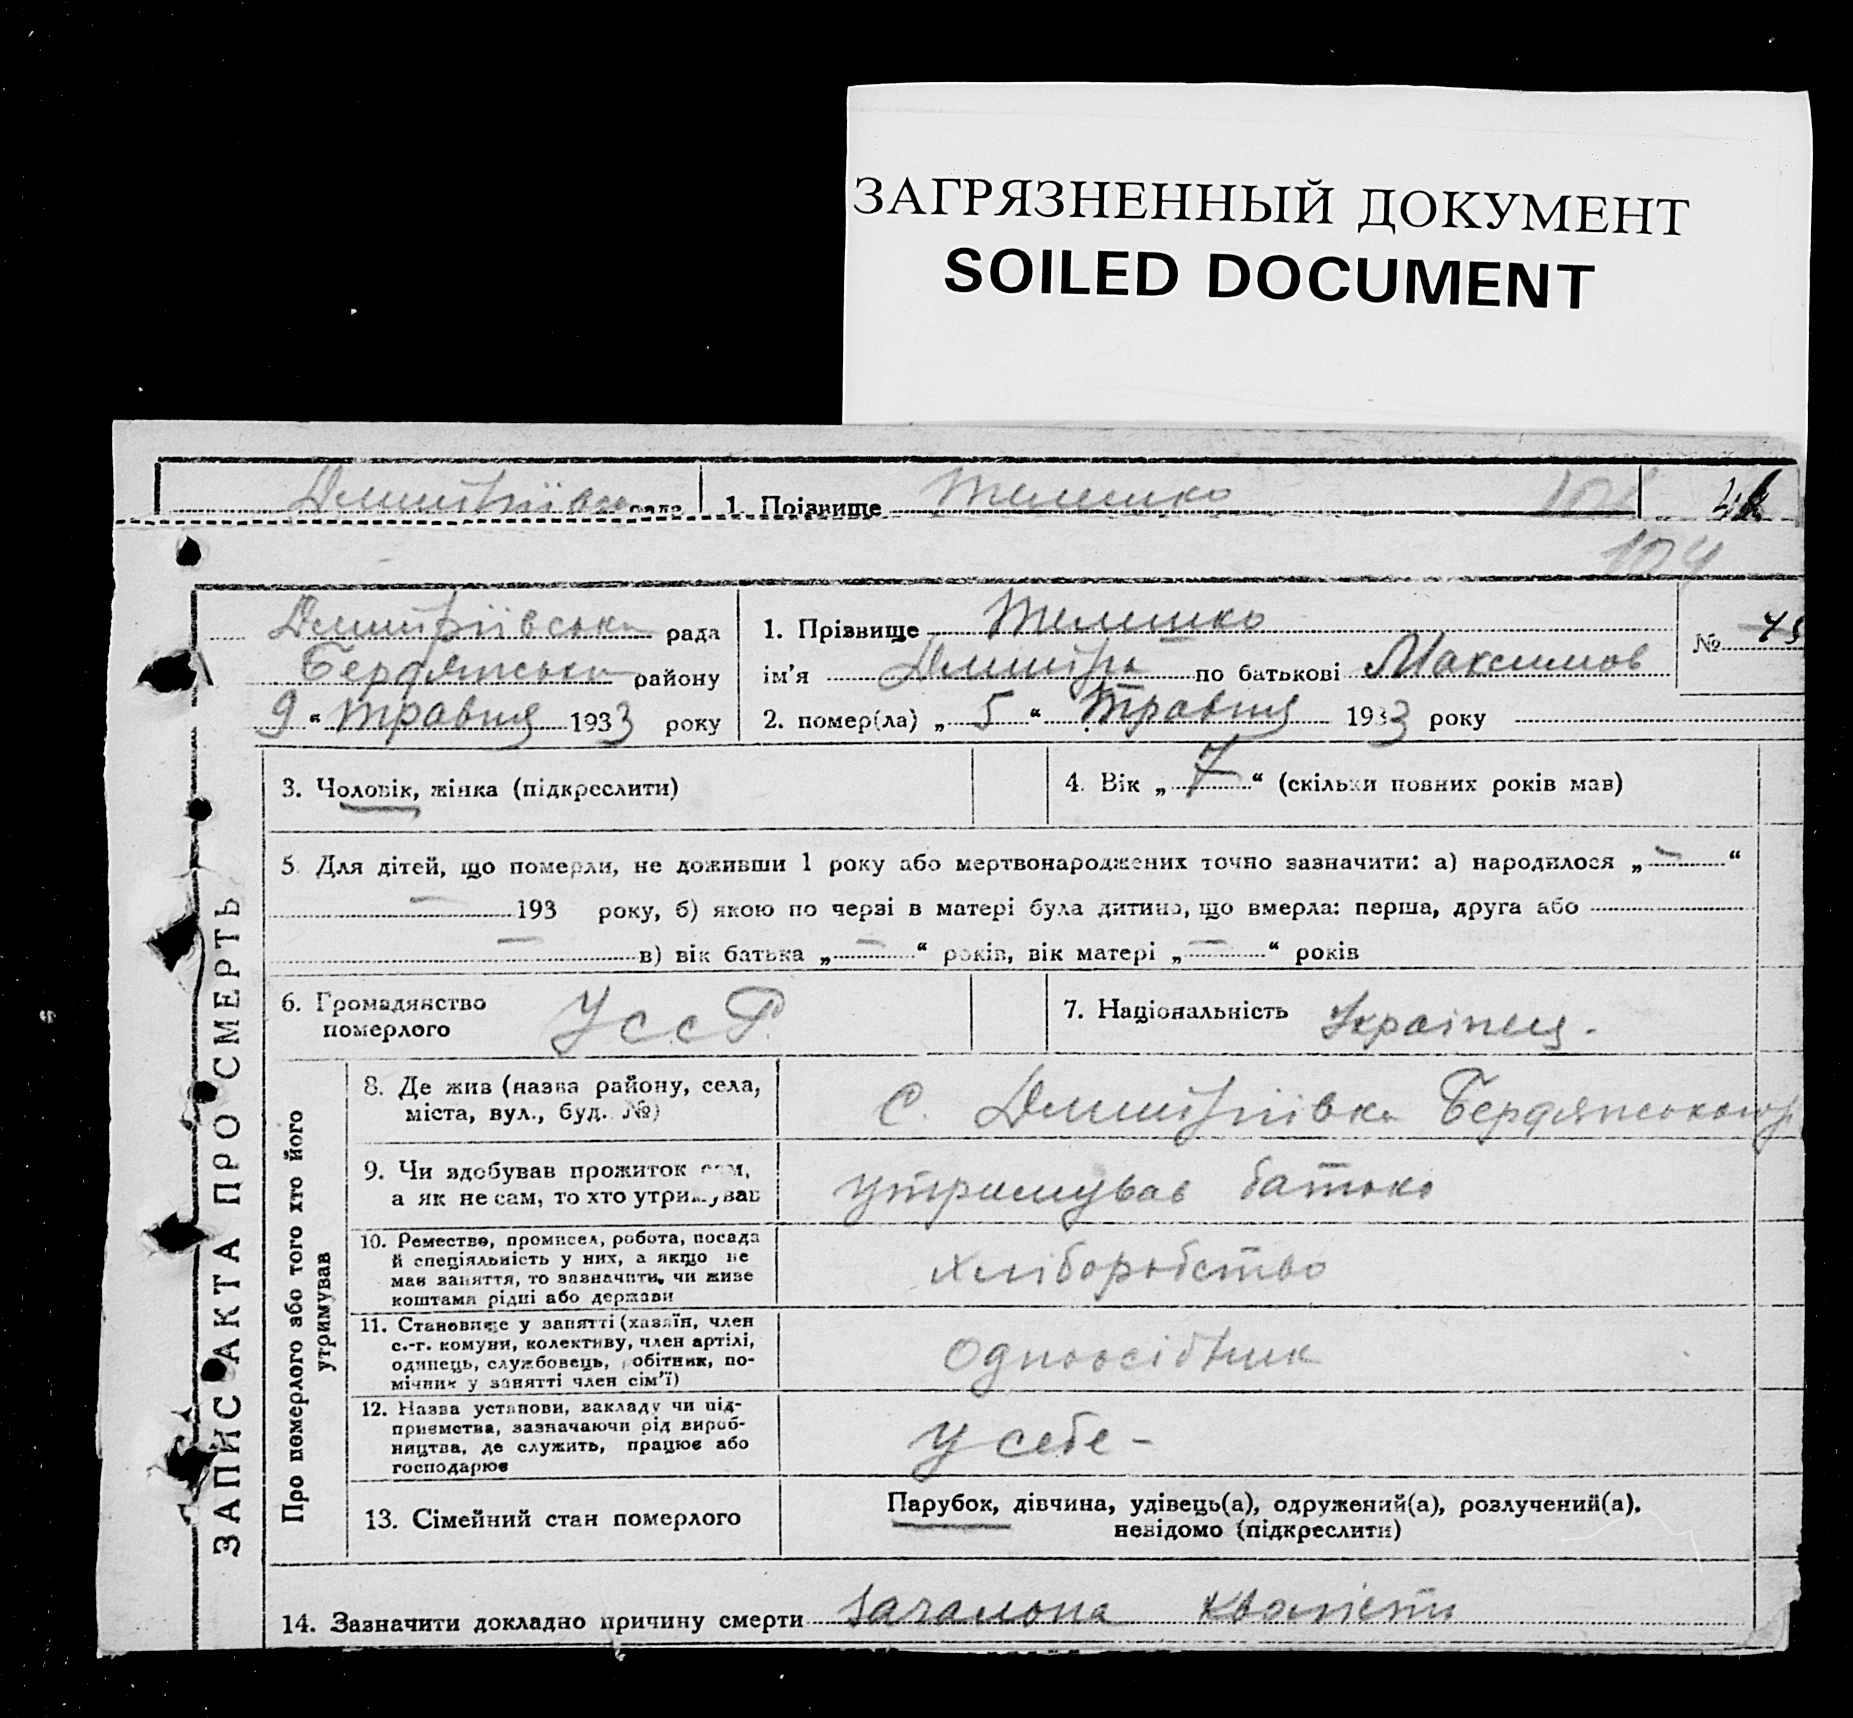 ЗАГРЯЗНЕННЫЙ ДОКУМЕНТ
SOILED DOCUMENT
Дмитріївська рада 1. Прізвище Телешко
104
Дмитріївська рада
Бердянська району
9 “ травня 1933 року
1. Прізвище Телешко
№ 45
ім’я Дмитро по батькові Максимов
2. помер(ла) „ 5 “ Травня 1933 року
3. Чоловік, жінка (підкреслити)
4. Вік „ 7 “ (скільки повних років мав)
5. Для дітей, що померли, не доживши 1 року або мертвонароджених точно зазначити: а) народилося „ — “
— 193 року, б) якою по черзі в матері була дитина, що вмерла: перша, друга або
— в) вік батька „ — “ років, вік матері „ — “ років
6. Громадянство
померлого
УССР.
7. Національність Українец.
ЗАПИС АКТА ПРО СМЕРТЬ
Про померлого або того хто його
утримував
8. Де жив (назва району, села,
міста, вул., буд. №)
С. Дмитріівка Бердянського р
9. Чи здобував прожиток сам,
а як не сам, то хто утримував
утримував батько
10. Ремество, промисел, робота, посада
й спеціяльність у них, а якщо не
мав заняття, то зазначити, чи живе
коштами рідні або держави
хліборобство
11. Становище у занятті (хазяїн, член
с.-г. комуни, колективу, член артілі,
одинець, службовець, робітник, по-
мічник у занятті член сім’ї)
одноосібник
12. Назва установи, закладу чи під-
приємства, зазначаючи рід вироб-
ництва, де служить, працює або
господарює
у себе -
13. Сімейний стан померлого
Парубок, дівчина, удівець(а), одружений(а), розлучений(а).
невідомо (підкреслити)
14. Зазначити докладно причину смерти